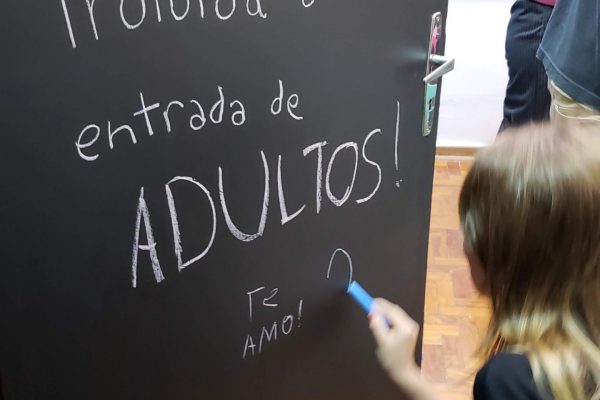 Proibida a
entrada de
ADULTOS!
TE
AMO!